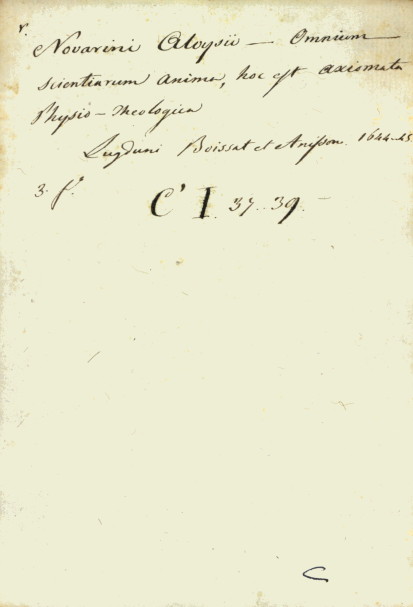 v.
Novarini Aloysii — Omnium
scientiarum anima, hoc est axiomata
Physio-theologica
Lugduni Boissat et Anisson. 1644-45
3. f°.
C' I. 37-39.
C